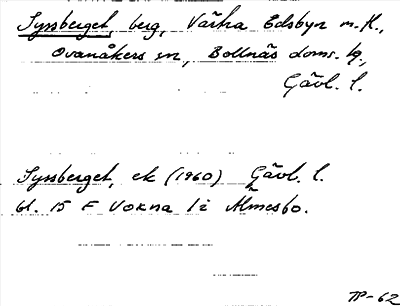 Syssberget berg, Västra Edsbyn m. fl.,
Ovanåkers sn, Bollnäs doms. hg.,
Gävl. l.
Syssberget, ek (1960) Gävl. l.
bl. 15 F Voxna 1 i Älmesbo.
TP-62